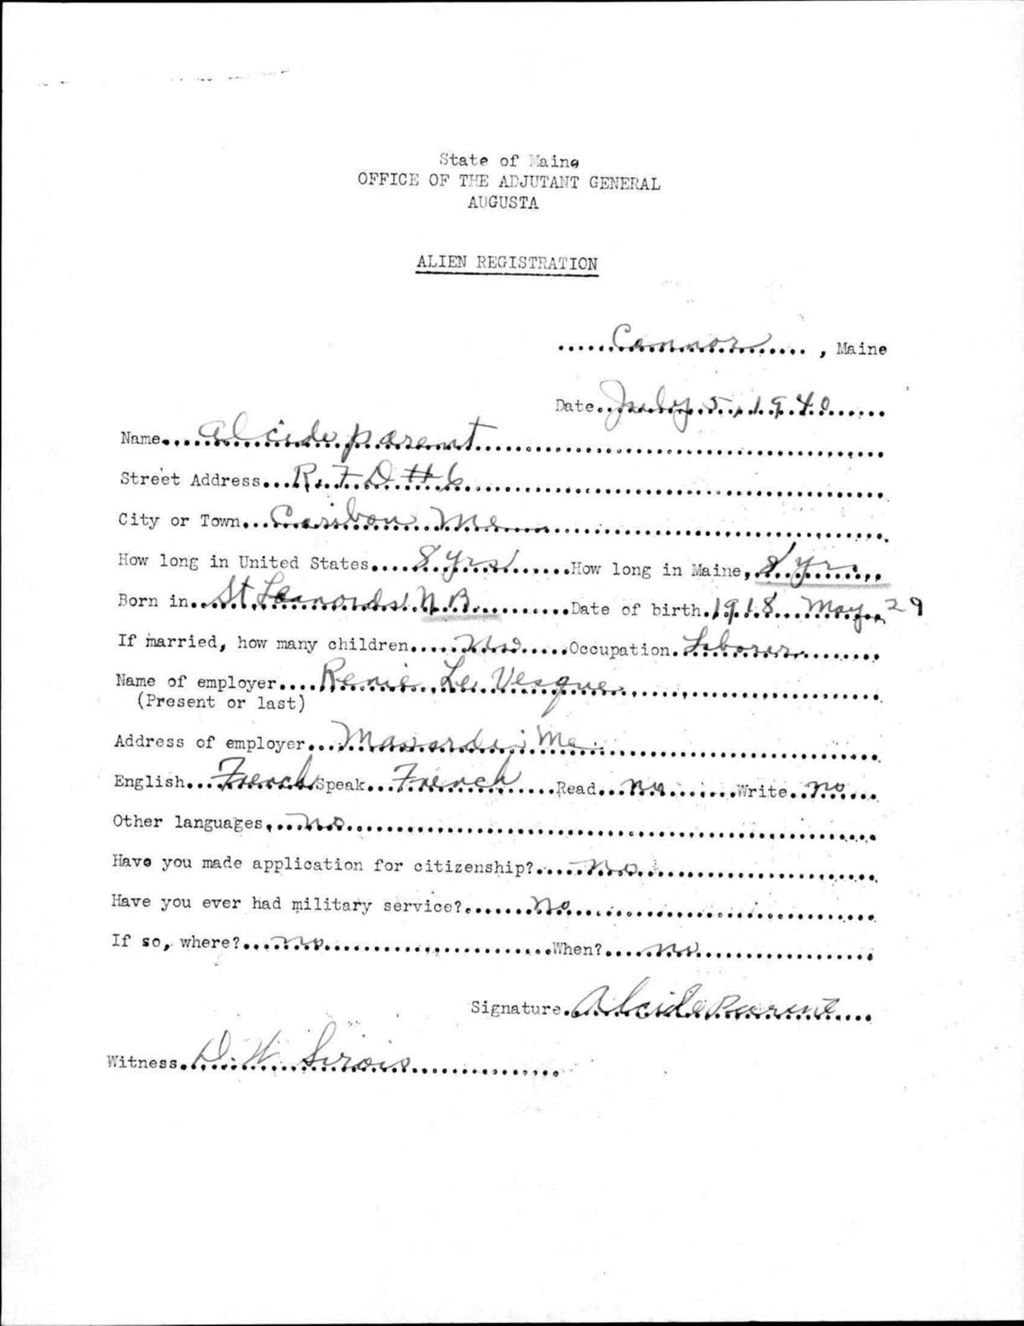 State of Maine
OFFICE OF THE ADJUTANT GENERAL
AUGUSTA
ALIEN REGISTRATION
Connor, Maine
Date July 5, 1940
Name Alcide parent
Street Address R. F. D #6
City or Town Caribou Me
How long in United States 8 yrs How long in Maine 8 yrs
Born in St Leanords N B Date of birth 1918 May 29
If married, how many children no Occupation Laborer
Name of employer Renie Le Vesque
(Present or last)
Address of employer Masardis Me
English French Speak French Read no Write no
Other languages no
Have you made application for citizenship? no
Have you ever had military service? no
If so, where? no When? no
Signature Alcide Parent
Witness D. W. Sirois